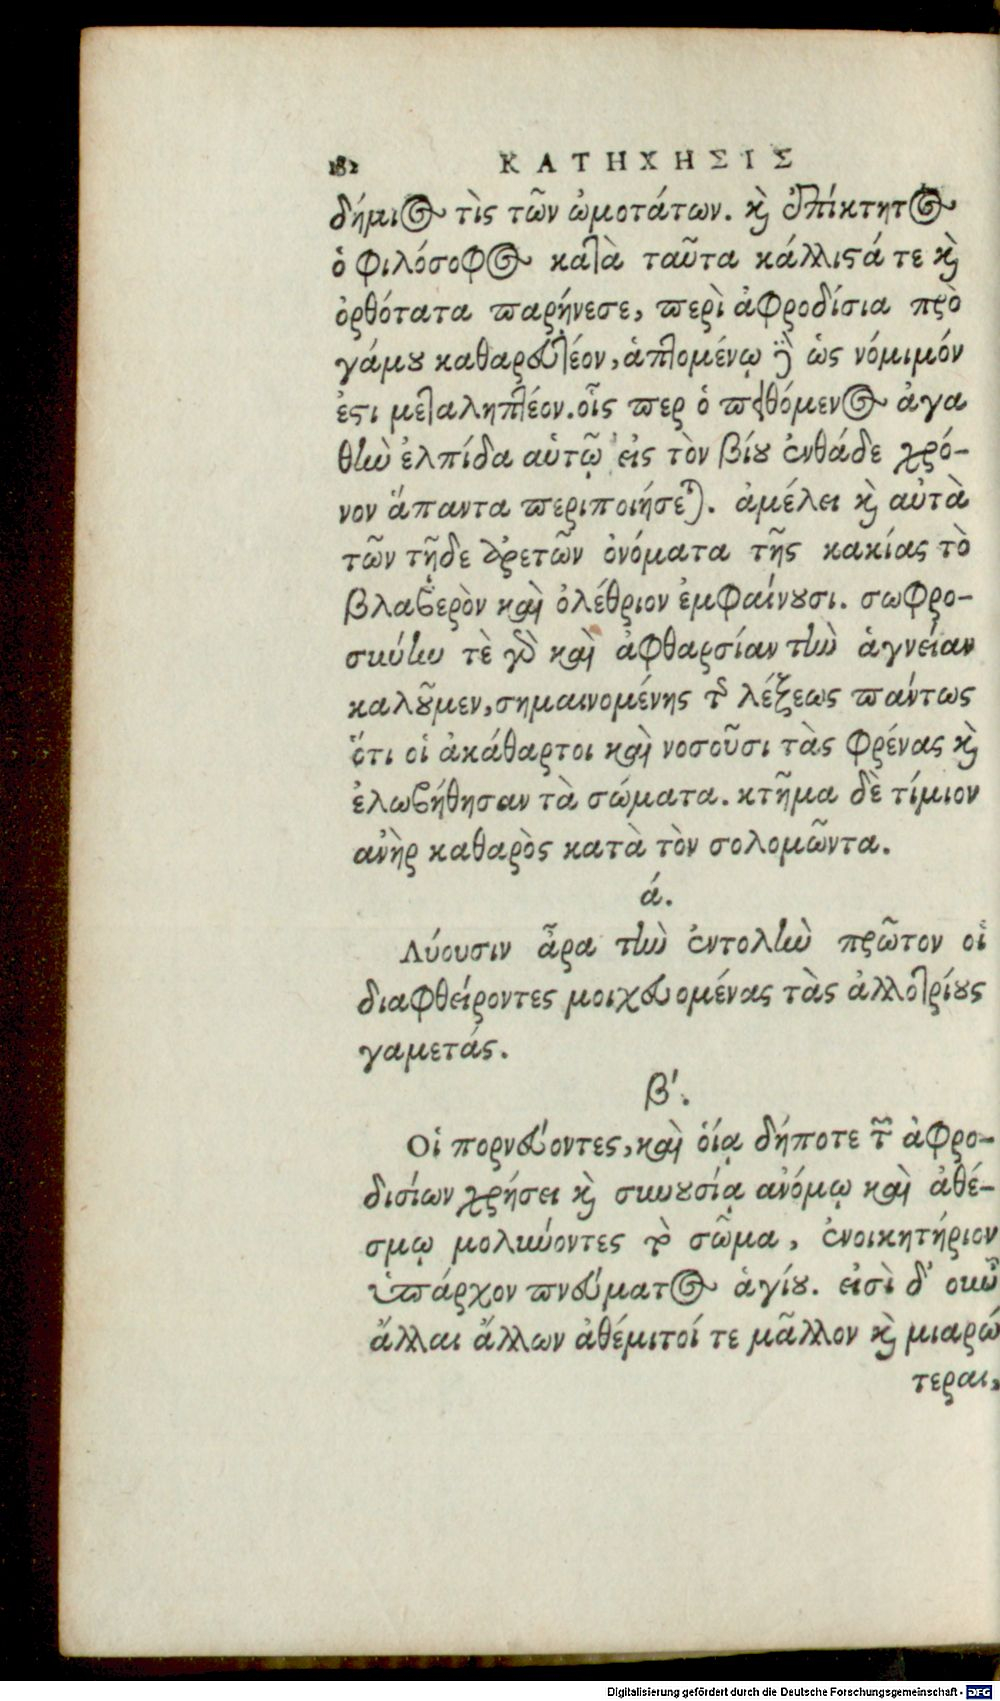 182 ΚΑΤΗΧΗΣΙΣ
δήμιος τὶς τῶν ὠμοτάτων. καὶ ἐπίκτητος
ὁ φιλόσοφος κατὰ ταῦτα κάλλιστά τε καὶ
ὀρθότατα παρήνεσε, περὶ ἀφροδίσια πρὸ
γάμου καθαρευτέον, ἁπτομένῳ δὲ ὡς νόμιμόν
ἐστι μεταληπτέον. οἷς περ ὁ πειθόμενος ἀγα
θὴν ἐλπίδα αὑτῷ εἰς τὸν βίου ἐνθάδε χρό-
νον ἅπαντα περιποιήσεται. ἀμέλει καὶ αὐτὰ
τῶν τῇδε ἀρετῶν ὀνόματα τῆς κακίας τὸ
βλαβερὸν καὶ ὀλέθριον ἐμφαίνουσι. σωφρο-
σύνην τὲ γὰρ καὶ ἀφθαρσίαν τὴν ἁγνείαν
καλοῦμεν, σημαινομένης τῆς λέξεως πάντως
ὅτι οἱ ἀκάθαρτοι καὶ νοσοῦσι τὰς φρένας καὶ
ἐλωβήθησαν τὰ σώματα. κτῆμα δὲ τίμιον
ἀνὴρ καθαρὸς κατὰ τὸν σολομῶντα.
ά.
Λύουσιν ἆρα τὴν ἐντολὴν πρῶτον οἱ
διαφθείροντες μοιχευομένας τὰς ἀλλοτρίους
γαμετάς.
β'.
Οἱ πορνεύοντες, καὶ οἵᾳ δήποτε τῶν ἀφρο-
δισίων χρήσει καὶ συνουσίᾳ ἀνόμῳ καὶ ἀθέ-
σμῳ μολύνοντες τὸ σῶμα, ἐνοικητήριον
ὑπάρχον πνεύματος ἁγίου. εἰσὶ δ' οὖν
ἄλλαι ἄλλων ἀθέμιτοί τε μᾶλλον καὶ μιαρώ
τεραι,
Digitalisierung gefördert durch die Deutsche Forschungsgemeinschaft - DFG